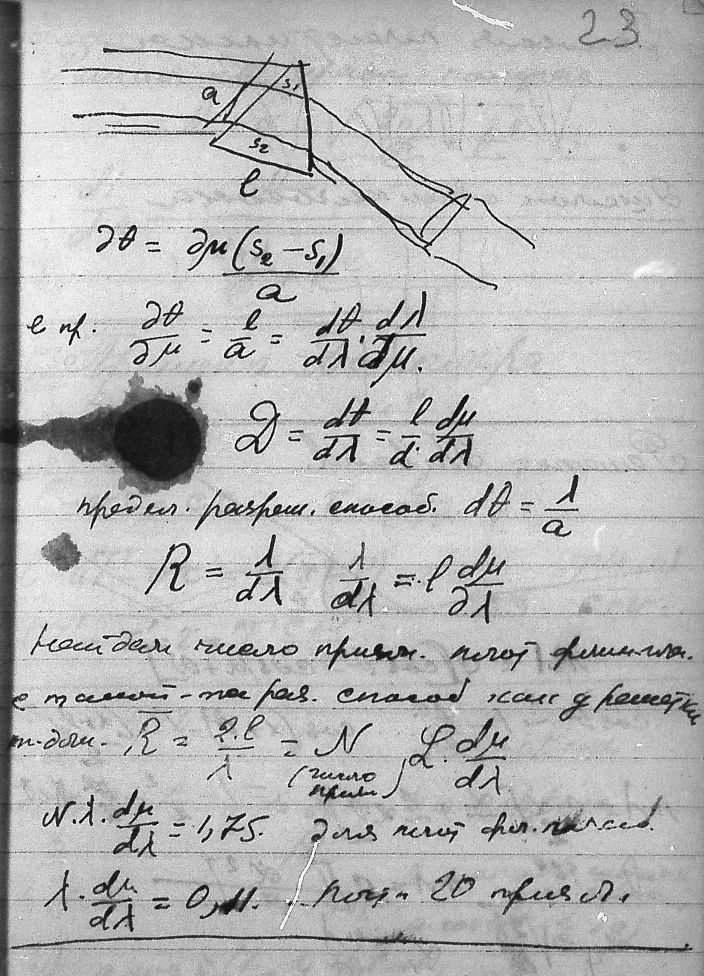 23
a s₁
s₂
l
∂θ = ∂μ(s₂ – s₁) / a
пр. ∂θ/∂μ = l/a = dθ/dλ · dλ/dμ.
D = dθ/dλ = l/d · dμ/dλ
предел. разреш. способ. dθ = λ/a
R = λ/dλ λ/dλ = l dμ/∂λ
Найдем число призм.
с такой-же раз. способ как у решетки
R = 2.l/λ = N (число призм) L · dμ/dλ
N.λ. dμ/dλ = 1,75. для
λ · dμ/dλ = 0, 20 призм.